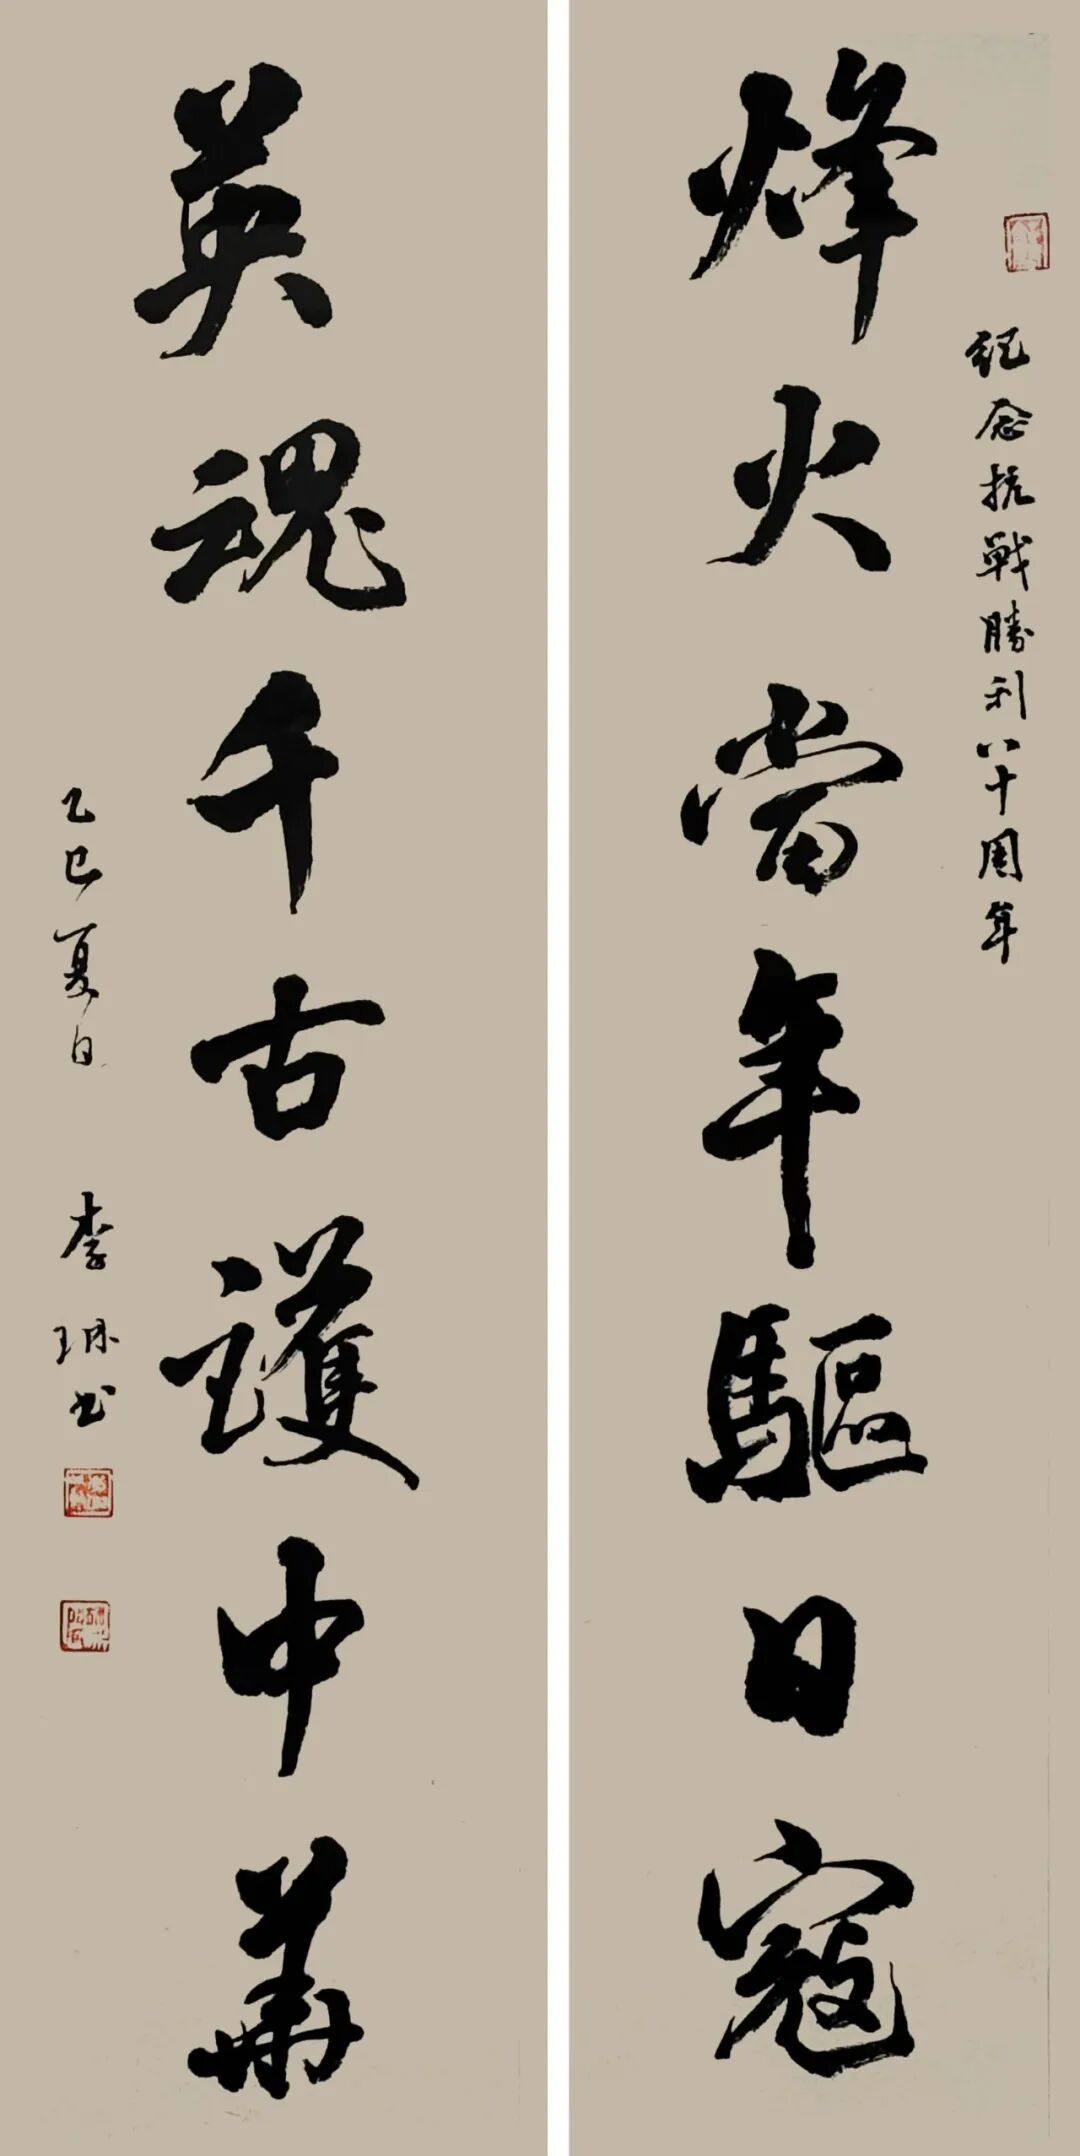 紀念抗戰勝利八十周年
烽火當年驅日寇
英魂千古護中華
乙巳夏日 李琳书